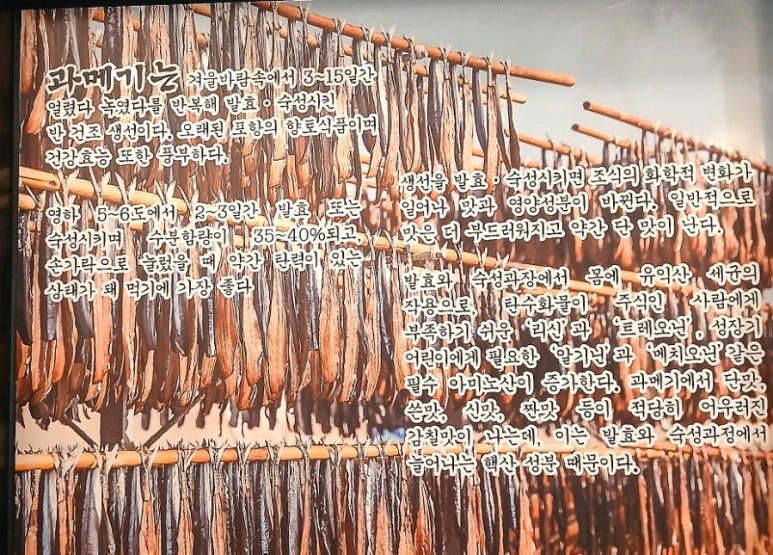 과메기는 겨울바람속에서 3~15일간
얼렸다 녹였다를 반복해 발효·숙성시킨
반 건조 생선이다. 오래된 포항의 향토식품이며
건강효능 또한 풍부하다.
영하 5~6도에서 2~3일간 발효 또는
숙성시키며 수분함량이 35~40%되고,
손가락으로 눌렀을 때 약간 탄력이 있는
상태가 돼 먹기에 가장 좋다
생선을 발효·숙성시키면 조직의 화학적 변화가
일어나 맛과 영양성분이 바뀐다. 일반적으로
맛은 더 부드러워지고 약간 단 맛이 난다.
발효와 숙성과장에서 몸에 유익산 세균의
작용으로, 탄수화물이 주식인 사람에게
부족하기 쉬운 '리신'과 '트레오닌', 성장기
어린이에게 필요한 '알기닌'과 '메치오닌' 같은
필수 아미노산이 증가한다. 과메기에서 단맛,
쓴맛, 신맛, 짠맛 등이 적당히 어우러진
감칠맛이 나는데, 이는 발효와 숙성과정에서
늘어나는 핵산 성분 때문이다.